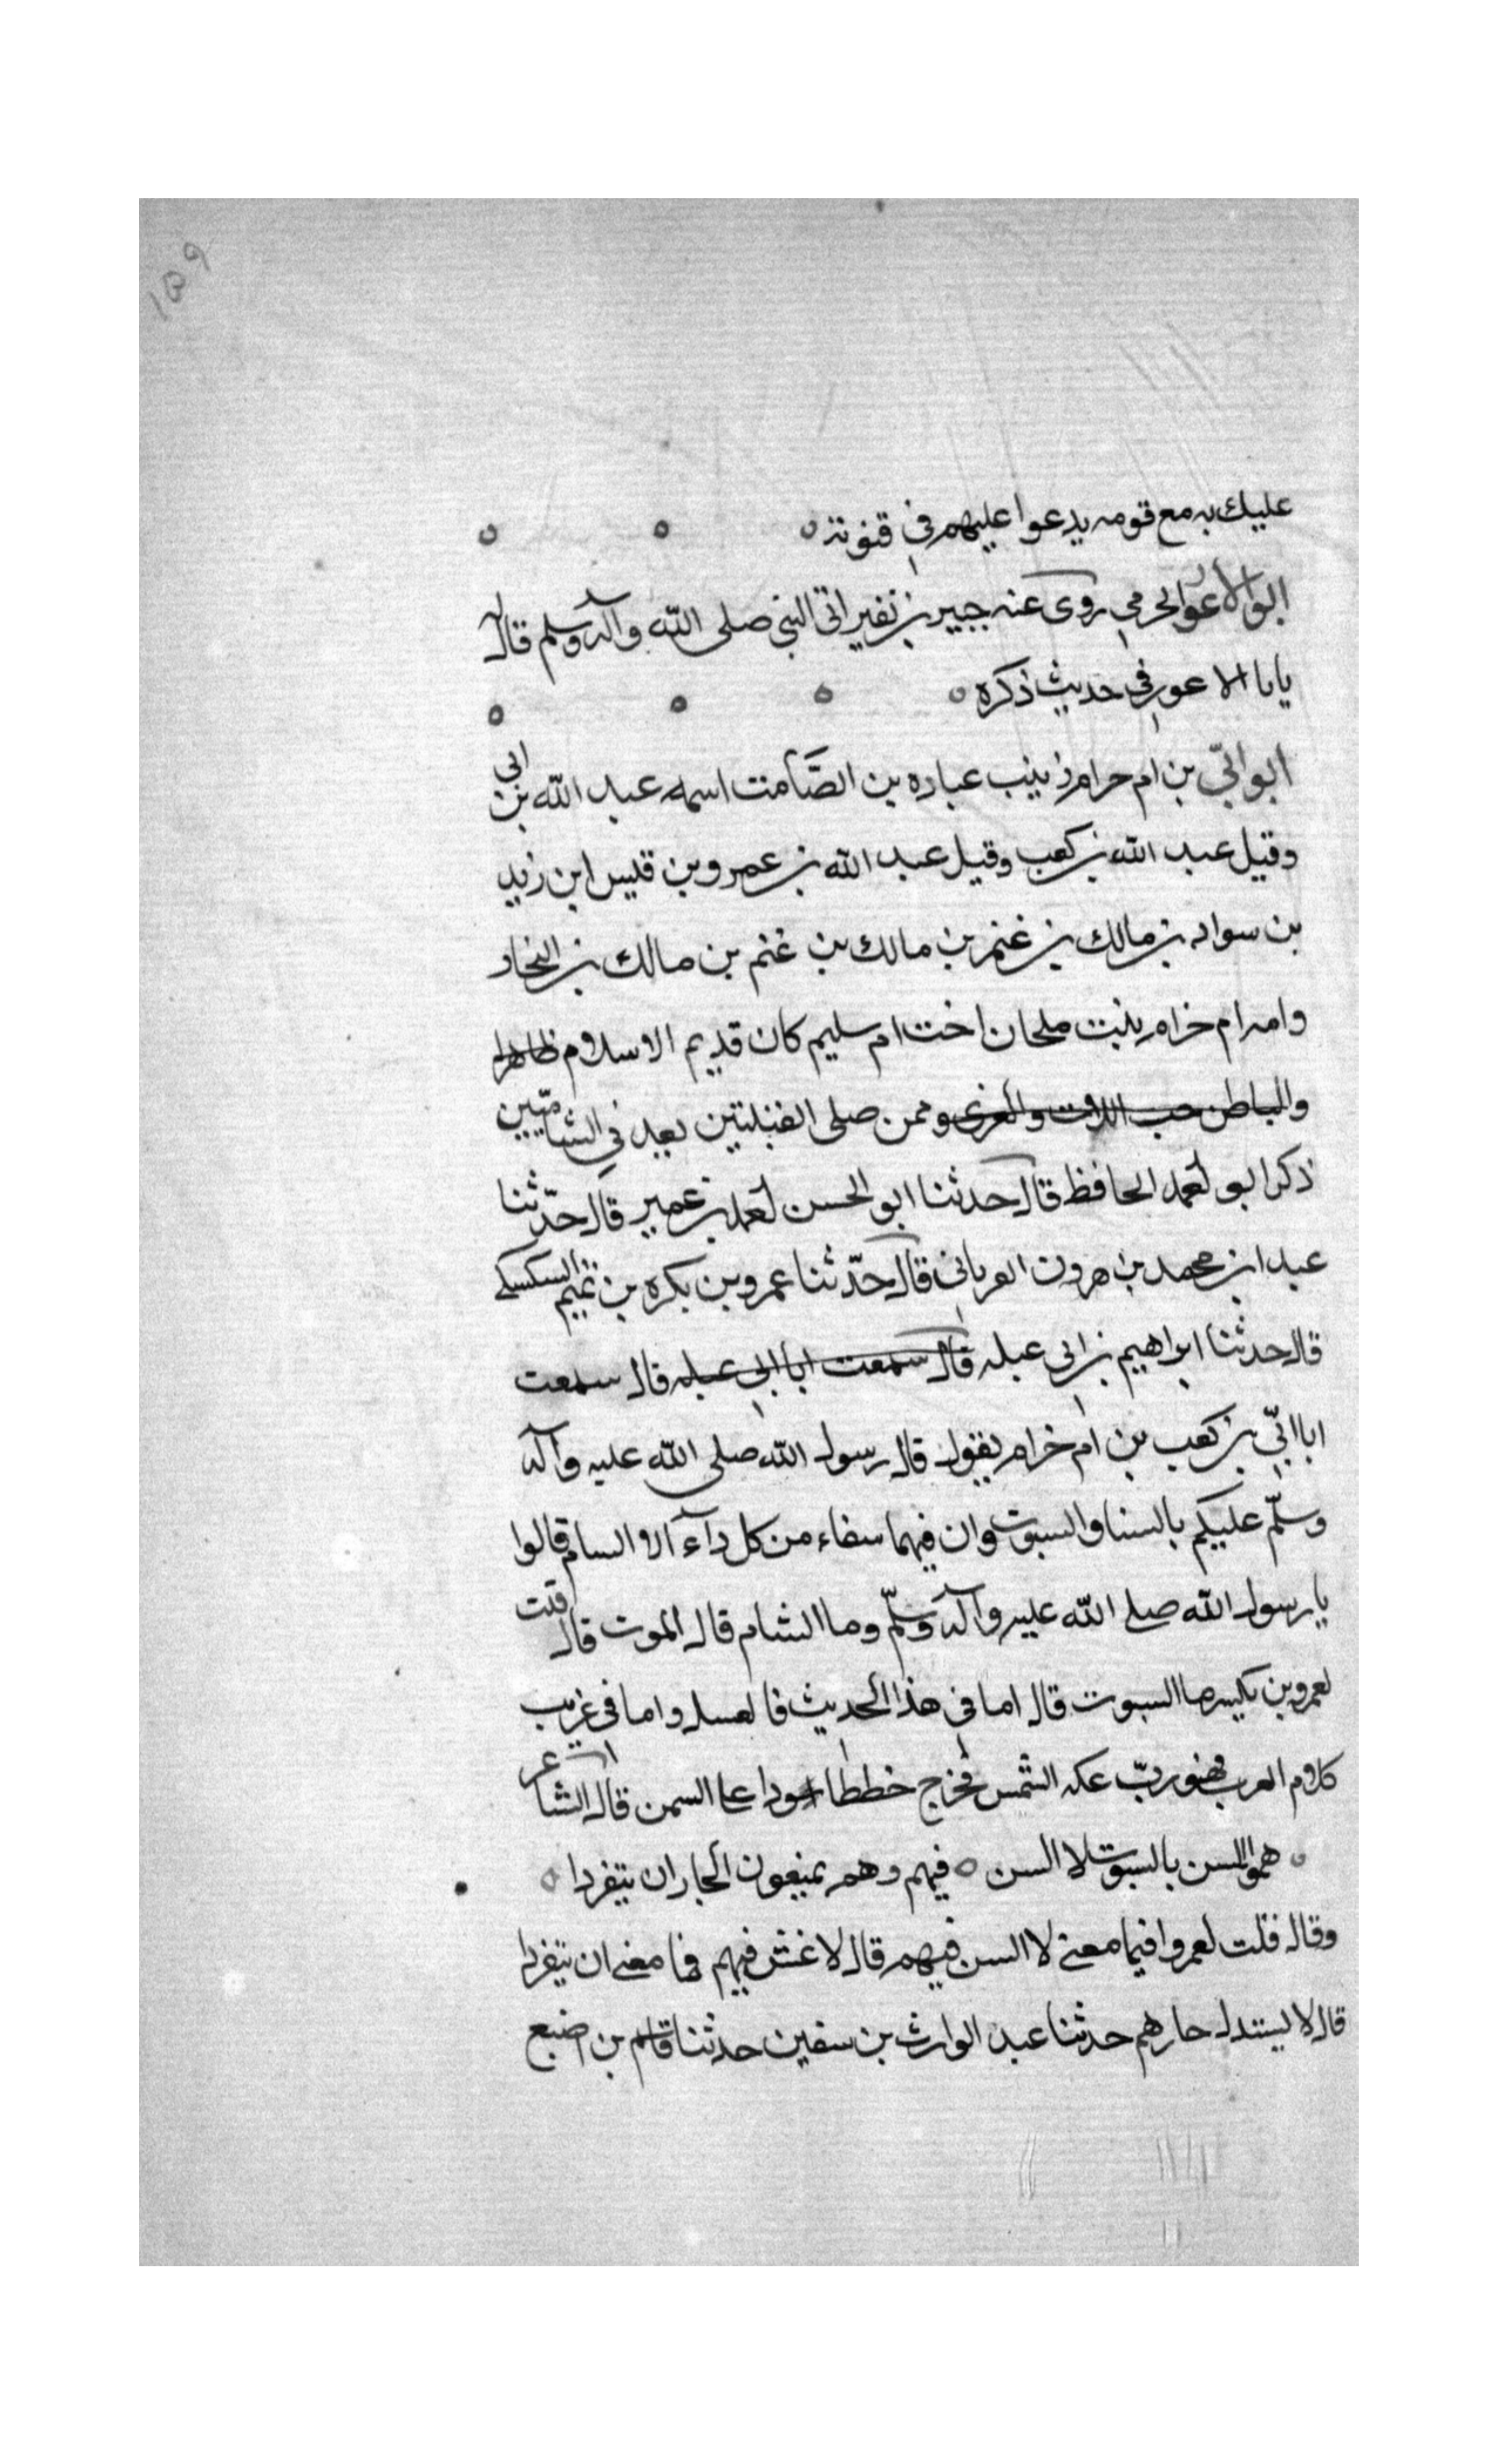 ١٥٩
عليك به مع قومه يدعوا عليهم في قنوته
ابو الاعور الجرمي روى عنه جبير بن نفير اتى النبي صلى الله وآله وسلم قال له
يابا الاعور في حديث ذكره
ابو ابيّ بن ام حرام ربيب عباده بن الصّامت اسمه عبد الله بن ابي
وقيل عبد الله بن كعب وقيل عبد الله بن عمرو بن قيس ابن زيد
بن سواد بن مالك بن غنم بن مالك بن غنم بن مالك بن النجار
وامه ام خرام بنت ملحان اخت ام سليم كان قديم الاسلام ظاهرا
والباطن حب اللات والعزى وممن صلى القبلتين يعد في الشاميّين
ذكر ابو احمد الحافظ قال حدثنا ابو الحسن احمد بن عمير قال حدّثنا
عبد ابن محمد بن هرون العرباني قال حدّثنا عمرو بن بكره بن تميم السكسكي
قال حدثنا ابراهيم بن ابي عبله قال سمعت ابا ابي عبله قال سمعت
ابا ابيّ بن كعب بن ام خرام يقول قال رسول الله صلى الله عليه وآله
وسلّم عليكم بالسنا والسبوت وان فيهما سفاء من كل دآء الا السام قالوا
يا رسول الله صلى الله عليه وآله وسلّم وما الشام قال الموت قال قلت
لعمرو بن بكير ما السبوت قال اما في هذا الحديث فالعسل واما في غريب
كلام العرب فهو ربّ عكه الشمس فخرج خططا سودا على السمن قال الشاعر
همو السن بالسبوت لا السن فيهم وهم يمنعون الجار ان يتفردا
وقال قلت لعمروا فيما معنى لا السن فيهم قال لا غش فيهم فما معنى ان يتفردا
قال لا يستدل جارهم حدثنا عبد الوارث بن سفين حدثنا قاسم بن اصبع